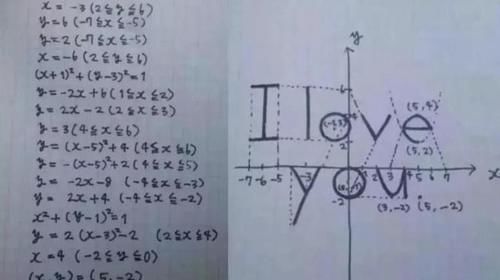 x = -3 (2≦y≦6)
y = 6 (-7≦x≦-5)
y = 2 (-7≦x≦-5)
x = -6 (2≦y≦6)
(x+1)² + (y-3)² = 1
y = -2x + 6 (1≦x≦2)
y = 2x - 2 (2≦x≦3)
y = 3 (4≦x≦6)
y = (x-5)² + 4 (4≦x≦6)
y = -(x-5)² + 2 (4≦x≦5)
y = -2x - 8 (-4≦x≦-3)
y = 2x + 4 (-4≦x≦-2)
x² + (y-1)² = 1
y = 2 (x-3)² - 2 (2≦x≦4)
x = 4 (-2≦y≦0)
(x, y) = (5, -2)
y
6
(5,4)
I love
2
(5,2)
-7 -6 -5 -3 2 3 4 5 6 7 x
you
-2
(3,-2) (5,-2)